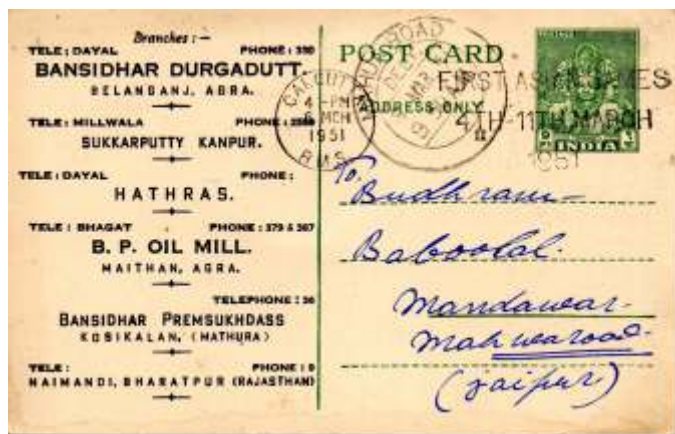 Branches :—
TELE : DAYAL PHONE : 330
BANSIDHAR DURGADUTT.
BELANGANJ, AGRA.
TELE : MILLWALA PHONE :
SUKKARPUTTY KANPUR.
TELE : DAYAL PHONE :
HATHRAS.
TELE : BHAGAT PHONE : 379 & 367
B. P. OIL MILL.
MAITHAN, AGRA.
TELEPHONE : 36
BANSIDHAR PREMSUKHDASS
KOSIKALAN, (MATHURA)
TELE : PHONE : 9
NAIMANDI, BHARATPUR (RAJASTHAN)
POST CARD
ADDRESS ONLY
CALCUTTA
4-PM
MCH
1951
R.M.S.
ROAD
MAR
FIRST ASIAN GAMES
4TH-11TH MARCH
1951
INDIA
To,
Budhram-
Baboolal.
Mandawar-
Mahwaroad-
(Jaipur)